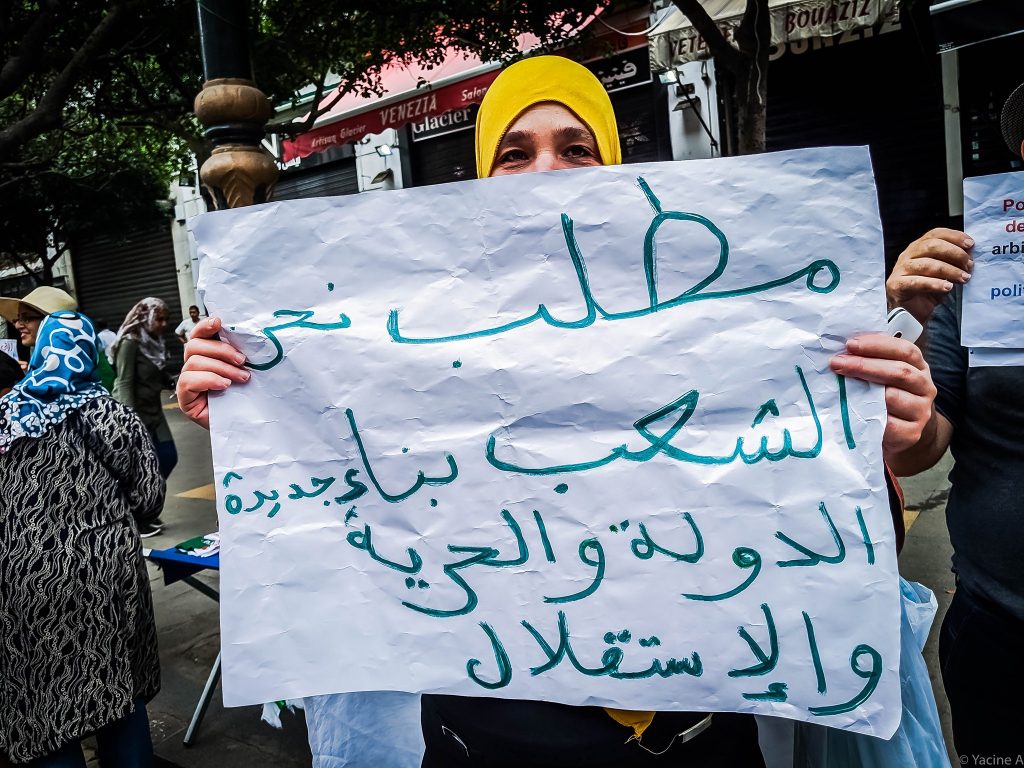 BOUAZIZ
VETEMENTS
Artisan Glacier VENEZIA Salon
Glacier
مطلب نحن
الشعب بناء جديدة
الدولة والحرية
والإستقلال
Po
de
arbi
polit
© Yacine A